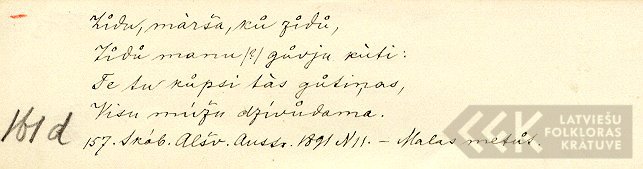 Zídu, mārša, kū zídů,
Zídů manu /?/ gůvju kùti:
Te tu kůpsi tàs gůtiņas,
Visu múžu dzívůdama.
161 d
157. Skáb. Alšv. Auss. 1891 N 11. – Malas metůt.
LATVIEŠU
FOLKLORAS
KRĀTUVE